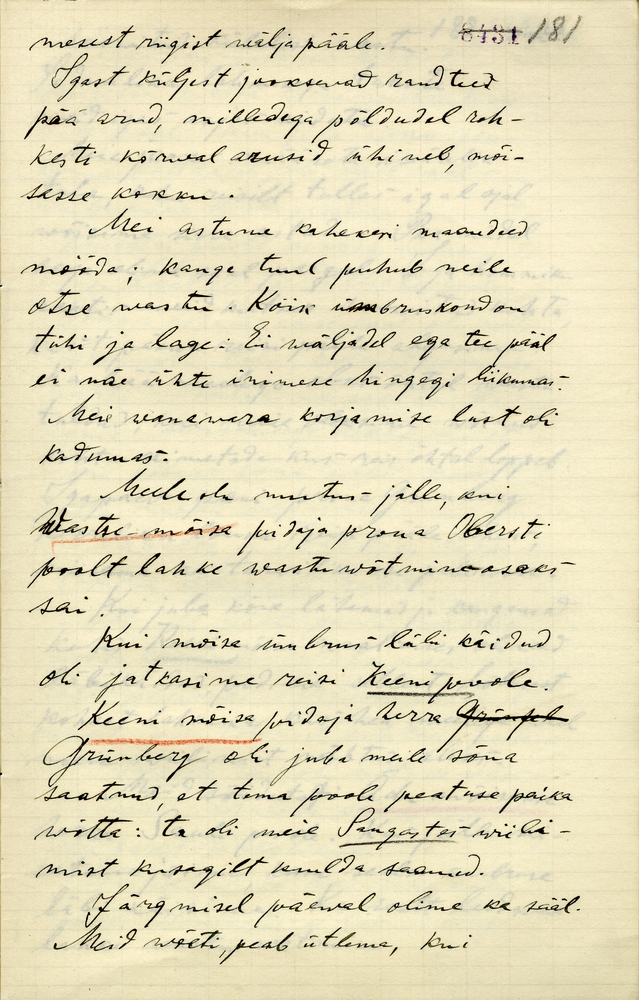 8431 181
mesest riigist wälja pääle.
Igast küljest jooksewad raudteed
pää arud, milledega põldudel roh-
kesti kõrwal arusid ühineb, mõi-
sasse kokku.
Mei astume kahekesi maanteed
mööda; kange tuul puhub meile
otse wastu. Kõik ümbruskond on
tühi ja lage: Ei wäljadel ega tee pääl
ei näe ühte inimese hingegi liikumas.
Meie wanawara korjamise lust oli
kadumas.
Meeleolu muutus jälle, kui
Wastse-mõisa pidaja proua Obersti
poolt lahke wastuwõtmine osaks
sai.
Kui mõisa ümbrus läbi käidud
oli jatkasime reisi Keeni poole.
Keeni mõisa pidaja herra Grünfeld
Grünberg oli juba meile sõna
saatnud, et tema poole peatuse paika
wõtta: ta oli meie Sangastes wiibi-
mist kusagilt kuulda saanud.
Järgmisel päewal olime ka sääl.
Meid wõeti, peab ütlema, kui